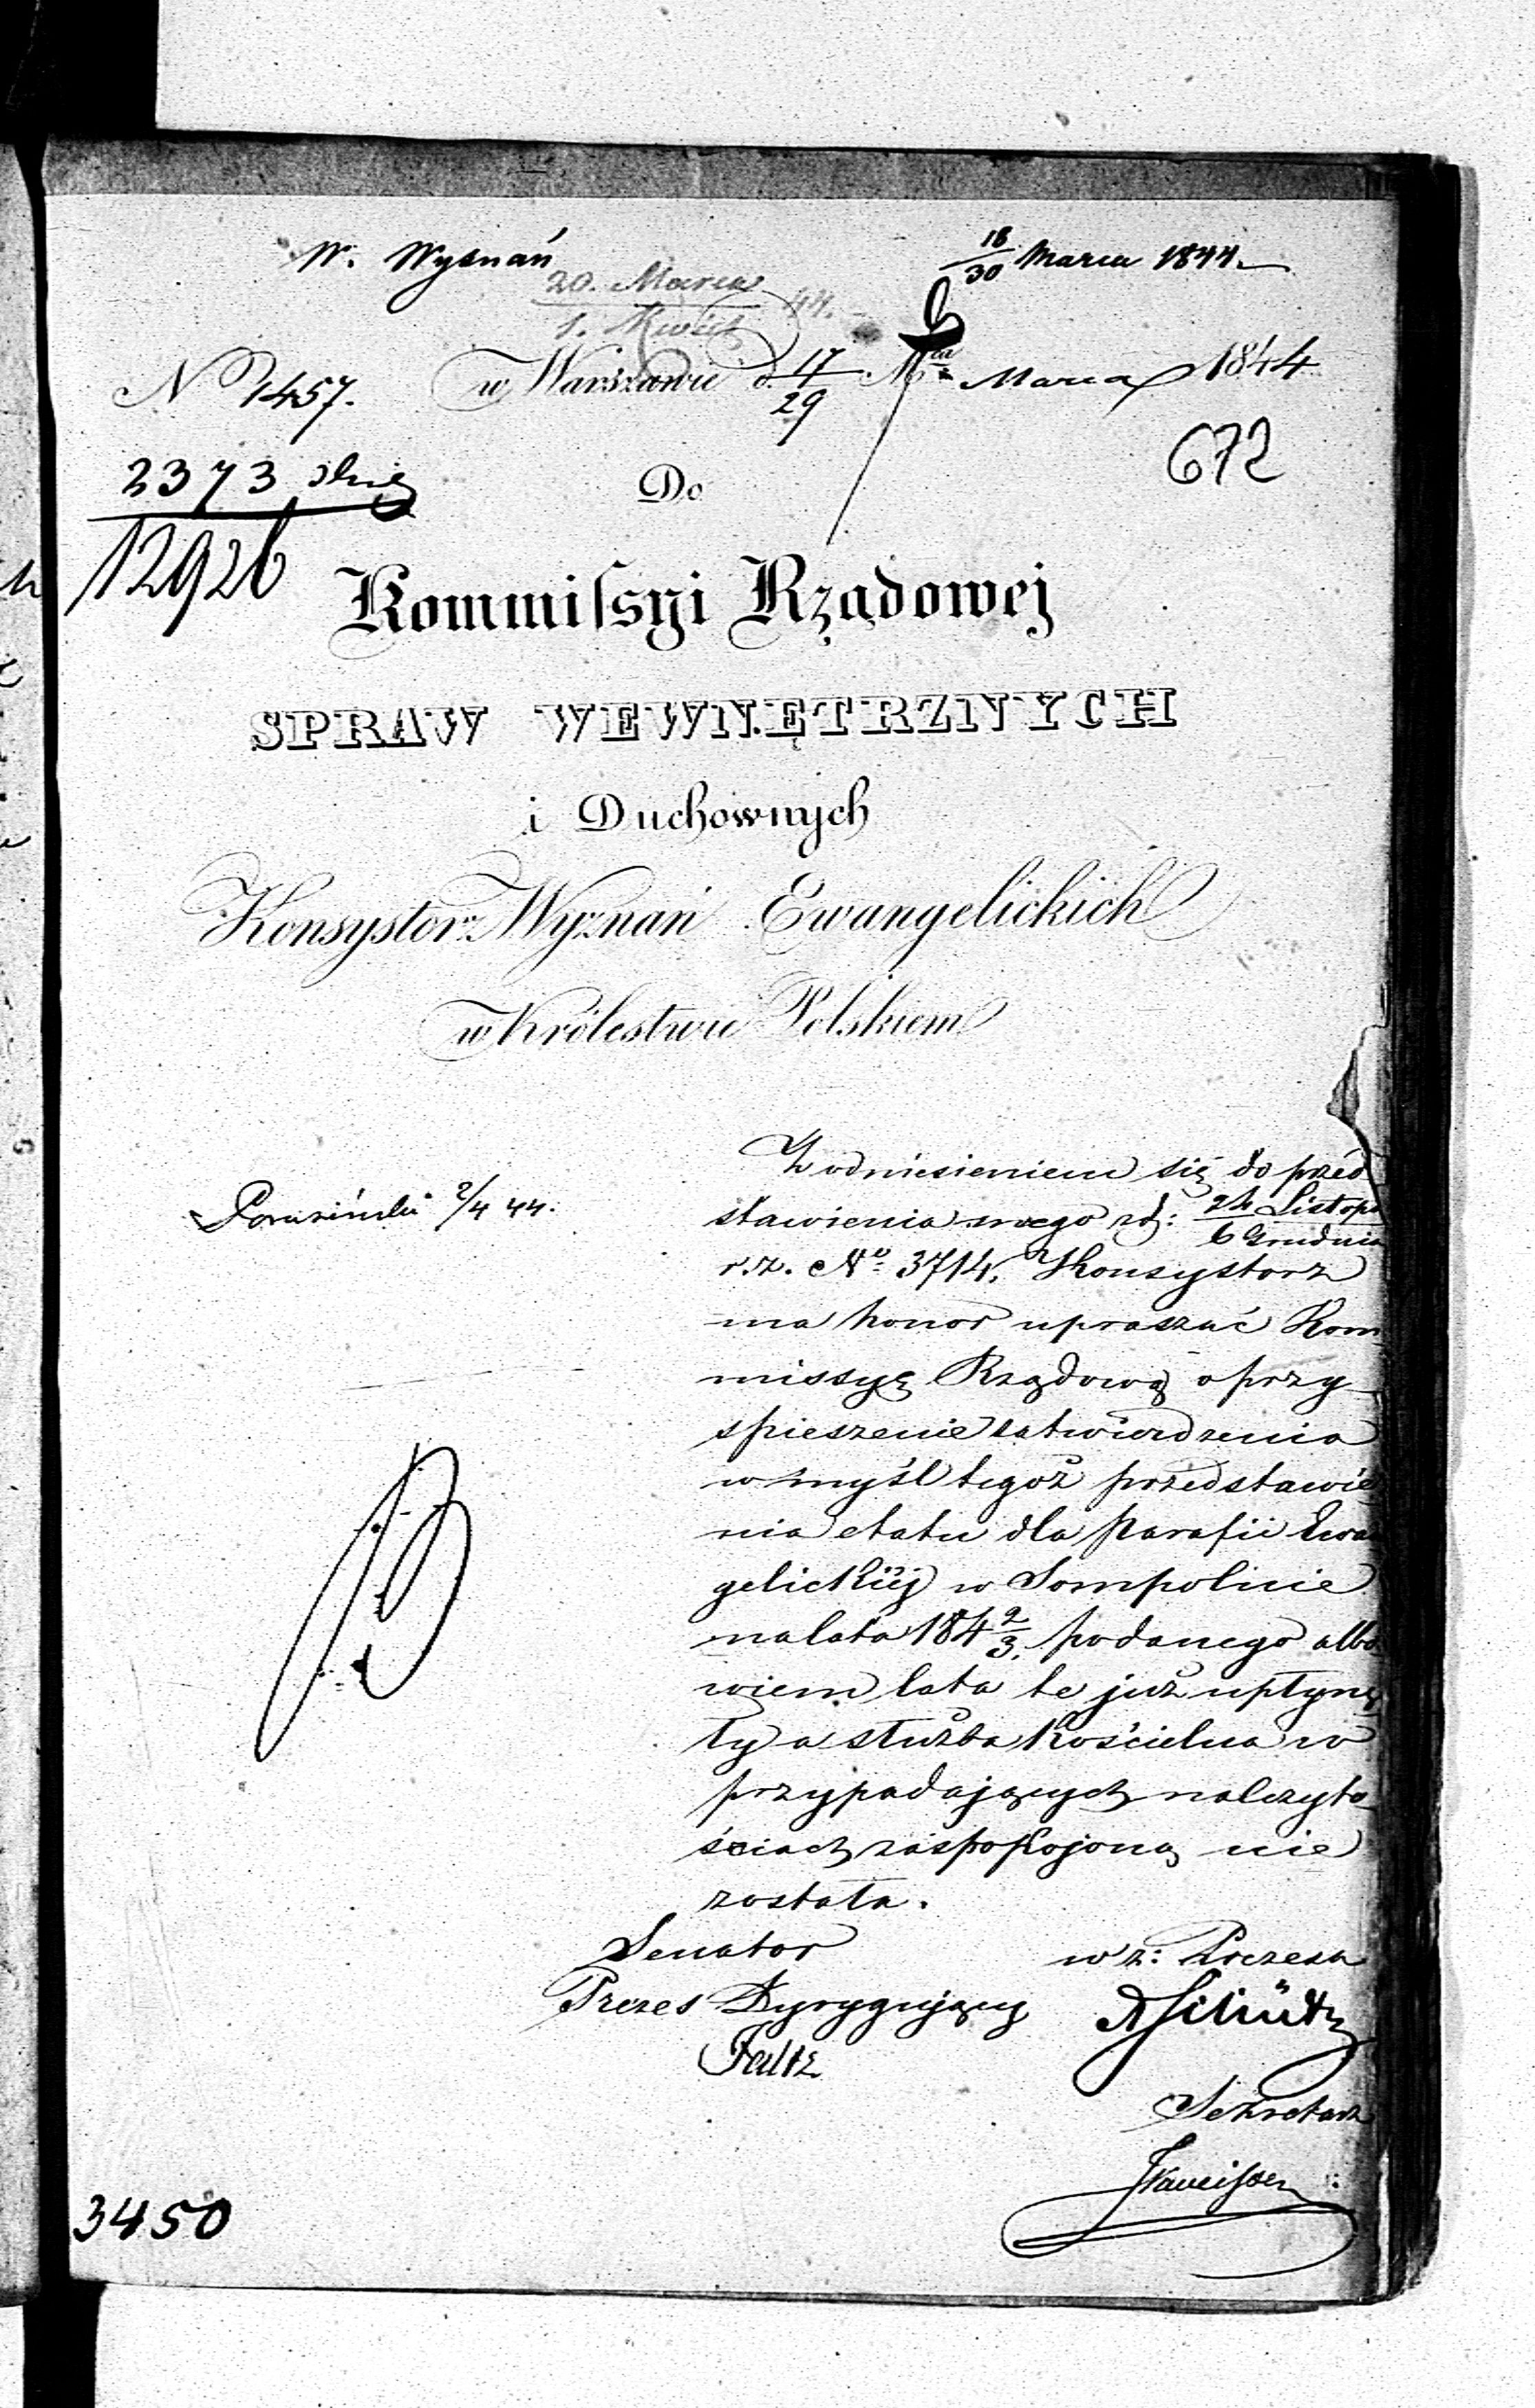 W. Wyznań
18/30 Marca 1844.
20. Marca
1. Kwiet. 44.
N 1457. w Warszawie d. 17/29 Mca Marca 1844
672
2373
12926
Do
Kommiſsyi Rządowej
SPRAW WEWNĘTRZNYCH
i Duchownych
Konsystorz Wyznań Ewangelickich
w Królestwie Polskiem
Z odniesieniem się do przed
stawienia swego zd: 24 Listopa / 6 Grudnia
r. z. No 3714, Konsystorz
ma honor upraszać Kom
missyę Rządową o przy
spieszenie zatwierdzenia
w myśl tegoż przedstawie
nia etatu dla Parafii Ewan
gelickiéj w Sompolnie
na lata 184 2/3. podanego albo
wiem lata te już upłynę
ły a służba Kościelna w
przypadających należyto
ściach zaspokojoną nie
została.
2/4 44.
Senator
w z: Prezesa
Prezes Dyrygujący
Schütz
Sekretarz
3450